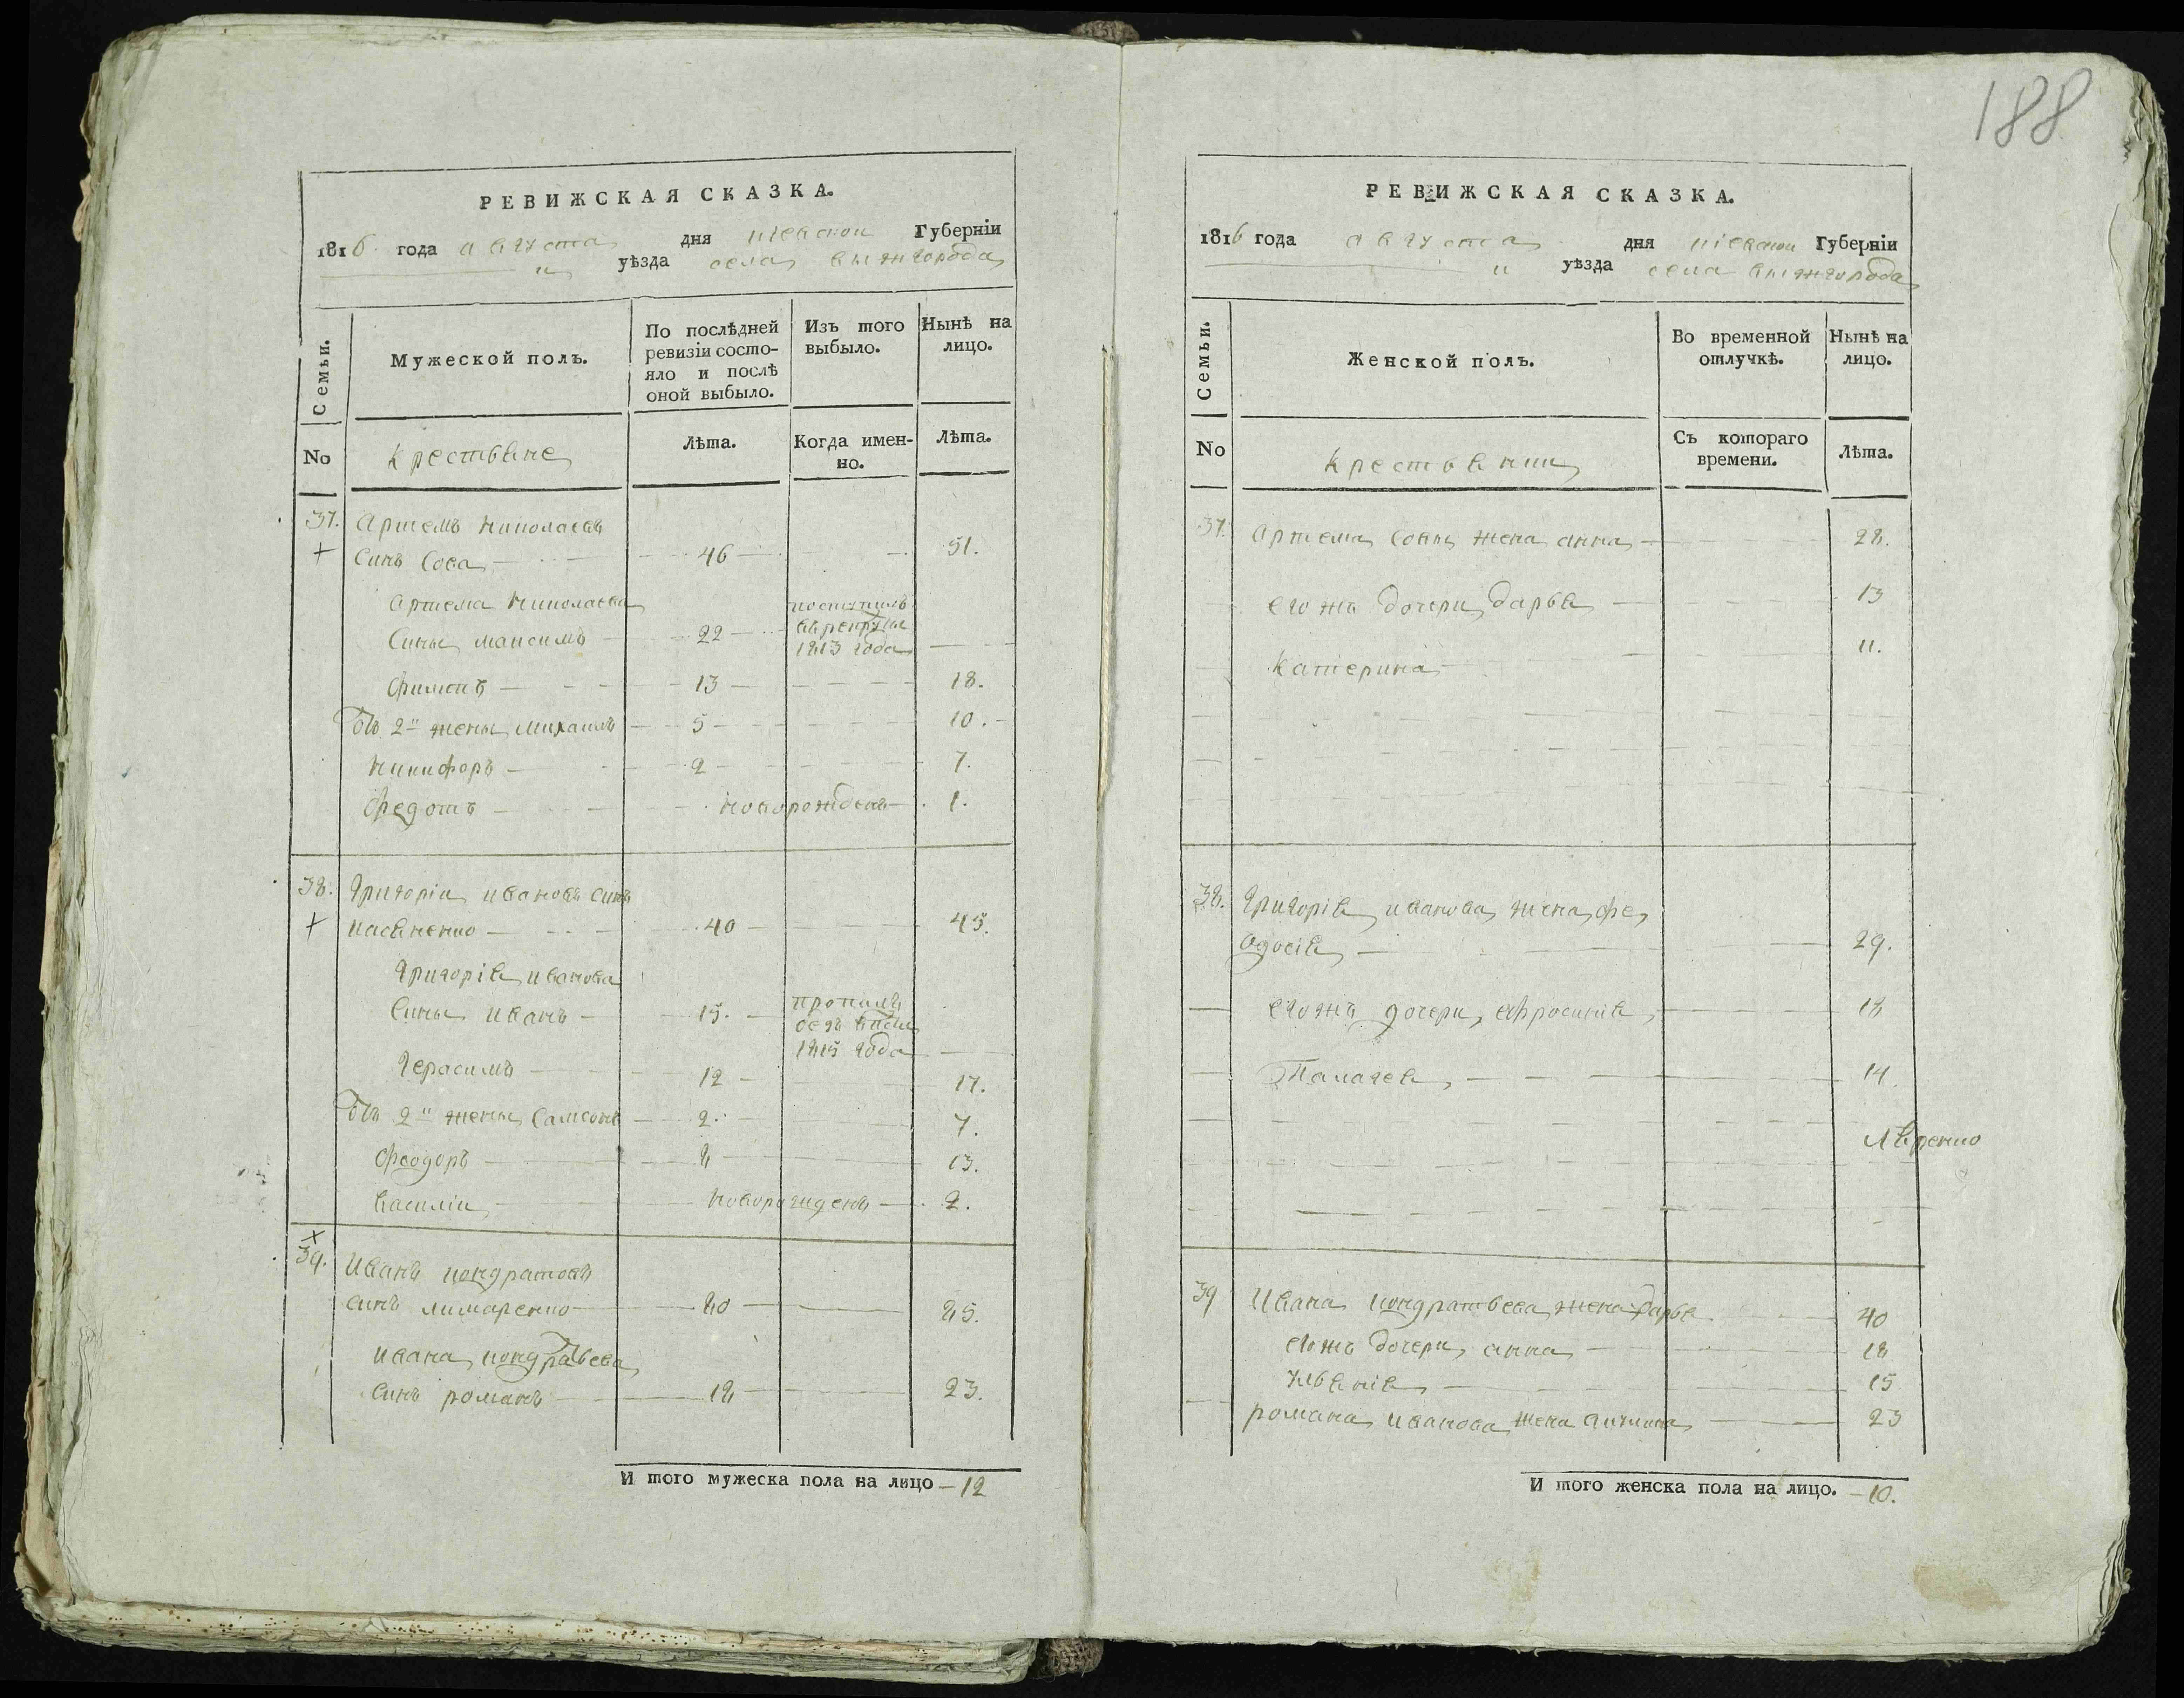 188
РЕВИЖСКАЯ СКАЗКА.
1816 года августа дня киевской Губерніи
уѣзда села вышгорода
Семьи.
Мужеской полъ.
По послѣдней ревизіи состо-
яло и послѣ оной выбыло.
Изъ того выбыло.
Нынѣ на лицо.
No
крестьяне
Лѣта.
Когда имен-
но.
Лѣта.
37. Артемъ николаевъ
синъ Сова 46 51.
Артема николаева
сины максимъ 22 поступилъ
в рекруты
1813 года
Филипъ 13 18.
отъ 2й жены михаилъ 5 10.
никифоръ 2 7.
Федотъ новорожденъ 1.
38. Григоріи ивановъ синъ
40 45.
Григорія иванова
сины иванъ 15. пропалъ
безъ
1815 года
Герасимъ 12 17.
отъ 2й жены Самсонъ 2. 7.
Феодоръ 8 13.
василіи новорожденъ 2.
39. Иванъ кондратовъ
синъ лимаренко 80 85.
ивана кондратьева
синъ романъ 18 23.
И того мужеска пола на лицо 12
РЕВИЖСКАЯ СКАЗКА.
1816 года августа дня киевской Губерніи
уѣзда села вышгорода
Семьи.
Женской полъ.
Во временной отлучкѣ.
Нынѣ на лицо.
No
крестьянки
Съ котораго времени.
Лѣта.
37. Артема совы жена анна 28.
его жъ дочери дарья 13
катерина 11.
38. Григорія иванова жена фе
одосія 29.
его жъ дочери, ефросинія 18
Палагея 14.
39 Ивана кондратьева жена дарья 40
его жъ дочери анна 18
ульянія 15
романа иванова жена 23
И того женска пола на лицо. 10.